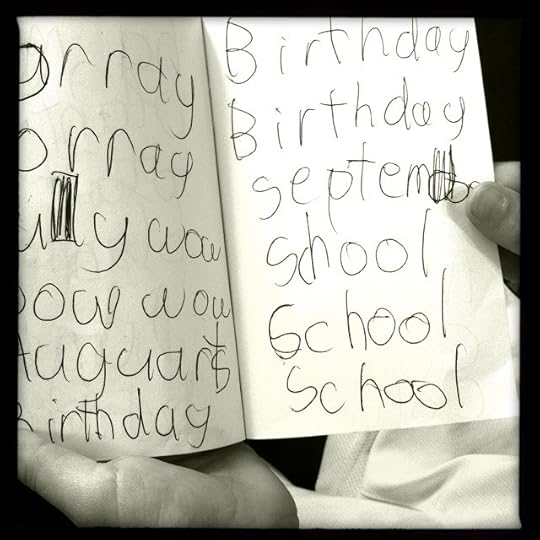 orray
orray
wow
wow wow
Auguarts
Birthday
Birthday
Birthday
Shool
School
School